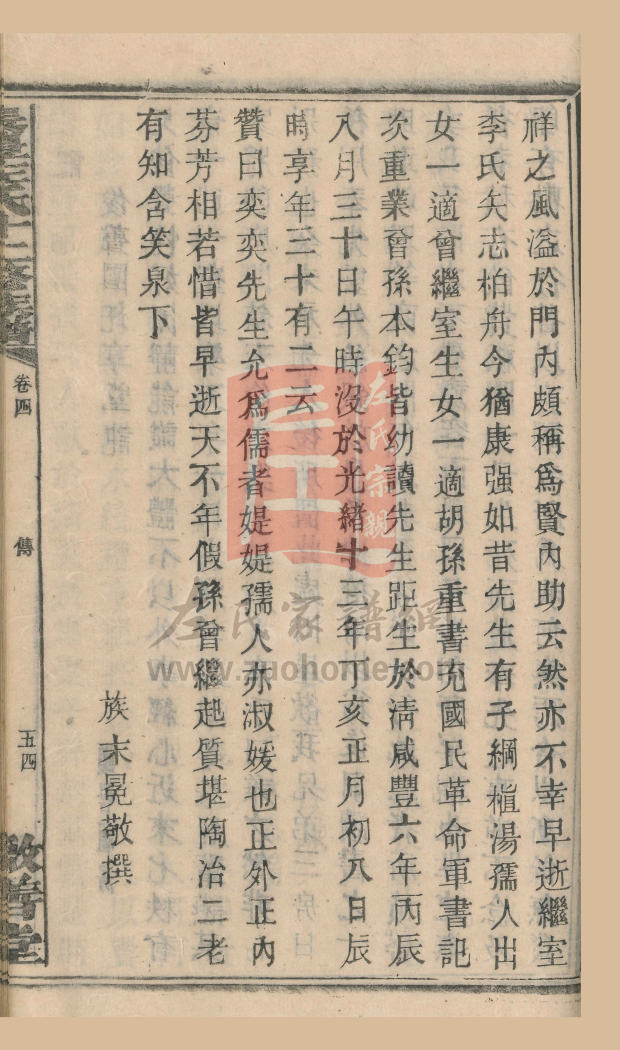 祥之風溢於門內頗稱爲賢內助云然亦不幸早逝繼室
李氏矢志柏舟今猶康强如昔先生有子綱楦湯孺人出
女一適曾繼室生女一適胡孫重書充國民革命軍書記
次重業曾孫本鈞皆幼讀先生距生於清咸豐六年丙辰
八月三十日午時沒於光緒十三年丁亥正月初八日辰
時享年三十有二云
贊曰奕奕先生允爲儒者媞媞孺人亦淑媛也正外正內
芬芳相若惜皆早逝天不年假孫曾繼起質堪陶冶二老
有知含笑泉下
族末冕敬撰
卷四
傳
五四
敦善堂
左氏宗親
左氏家譜網
www.zuohome.com